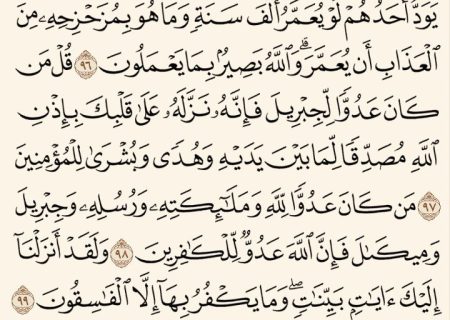 يَوَدُّ أَحَدُهُمْ لَوْ يُعَمَّرُ أَلْفَ سَنَةٍ وَمَا هُوَ بِمُزَحْزِحِهِۦ مِنَ
ٱلْعَذَابِ أَن يُعَمَّرَۗ وَٱللَّهُ بَصِيرُۢ بِمَا يَعْمَلُونَ ٩٦ قُلْ مَن
كَانَ عَدُوًّا لِّجِبْرِيلَ فَإِنَّهُۥ نَزَّلَهُۥ عَلَىٰ قَلْبِكَ بِإِذْنِ
ٱللَّهِ مُصَدِّقًا لِّمَا بَيْنَ يَدَيْهِ وَهُدًى وَبُشْرَىٰ لِلْمُؤْمِنِينَ
٩٧ مَن كَانَ عَدُوًّا لِّلَّهِ وَمَلَٰٓئِكَتِهِۦ وَرُسُلِهِۦ وَجِبْرِيلَ
وَمِيكَىٰلَ فَإِنَّ ٱللَّهَ عَدُوٌّ لِّلْكَٰفِرِينَ ٩٨ وَلَقَدْ أَنزَلْنَآ
إِلَيْكَ ءَايَٰتِۭ بَيِّنَٰتٍۖ وَمَا يَكْفُرُ بِهَآ إِلَّا ٱلْفَٰسِقُونَ ٩٩